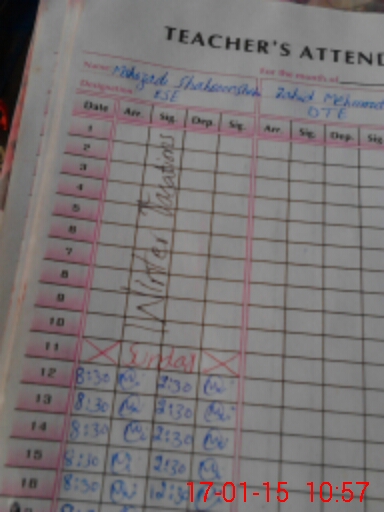 TEACHER'S ATTEN
Name For the month of
Zahid Mehmood
Designation ESE DTE
Date Arr. Sig. Dep. Sig. Arr. Sig. Dep. Sig.
1
2
3
4
5
6
7
8
9
10
Winter
11 Sunday
12 8:30 2:30
13 8:30 2:30
14 8:30 2:30
15 8:30 2:30
16 8:30 12:30
17-01-15 10:57